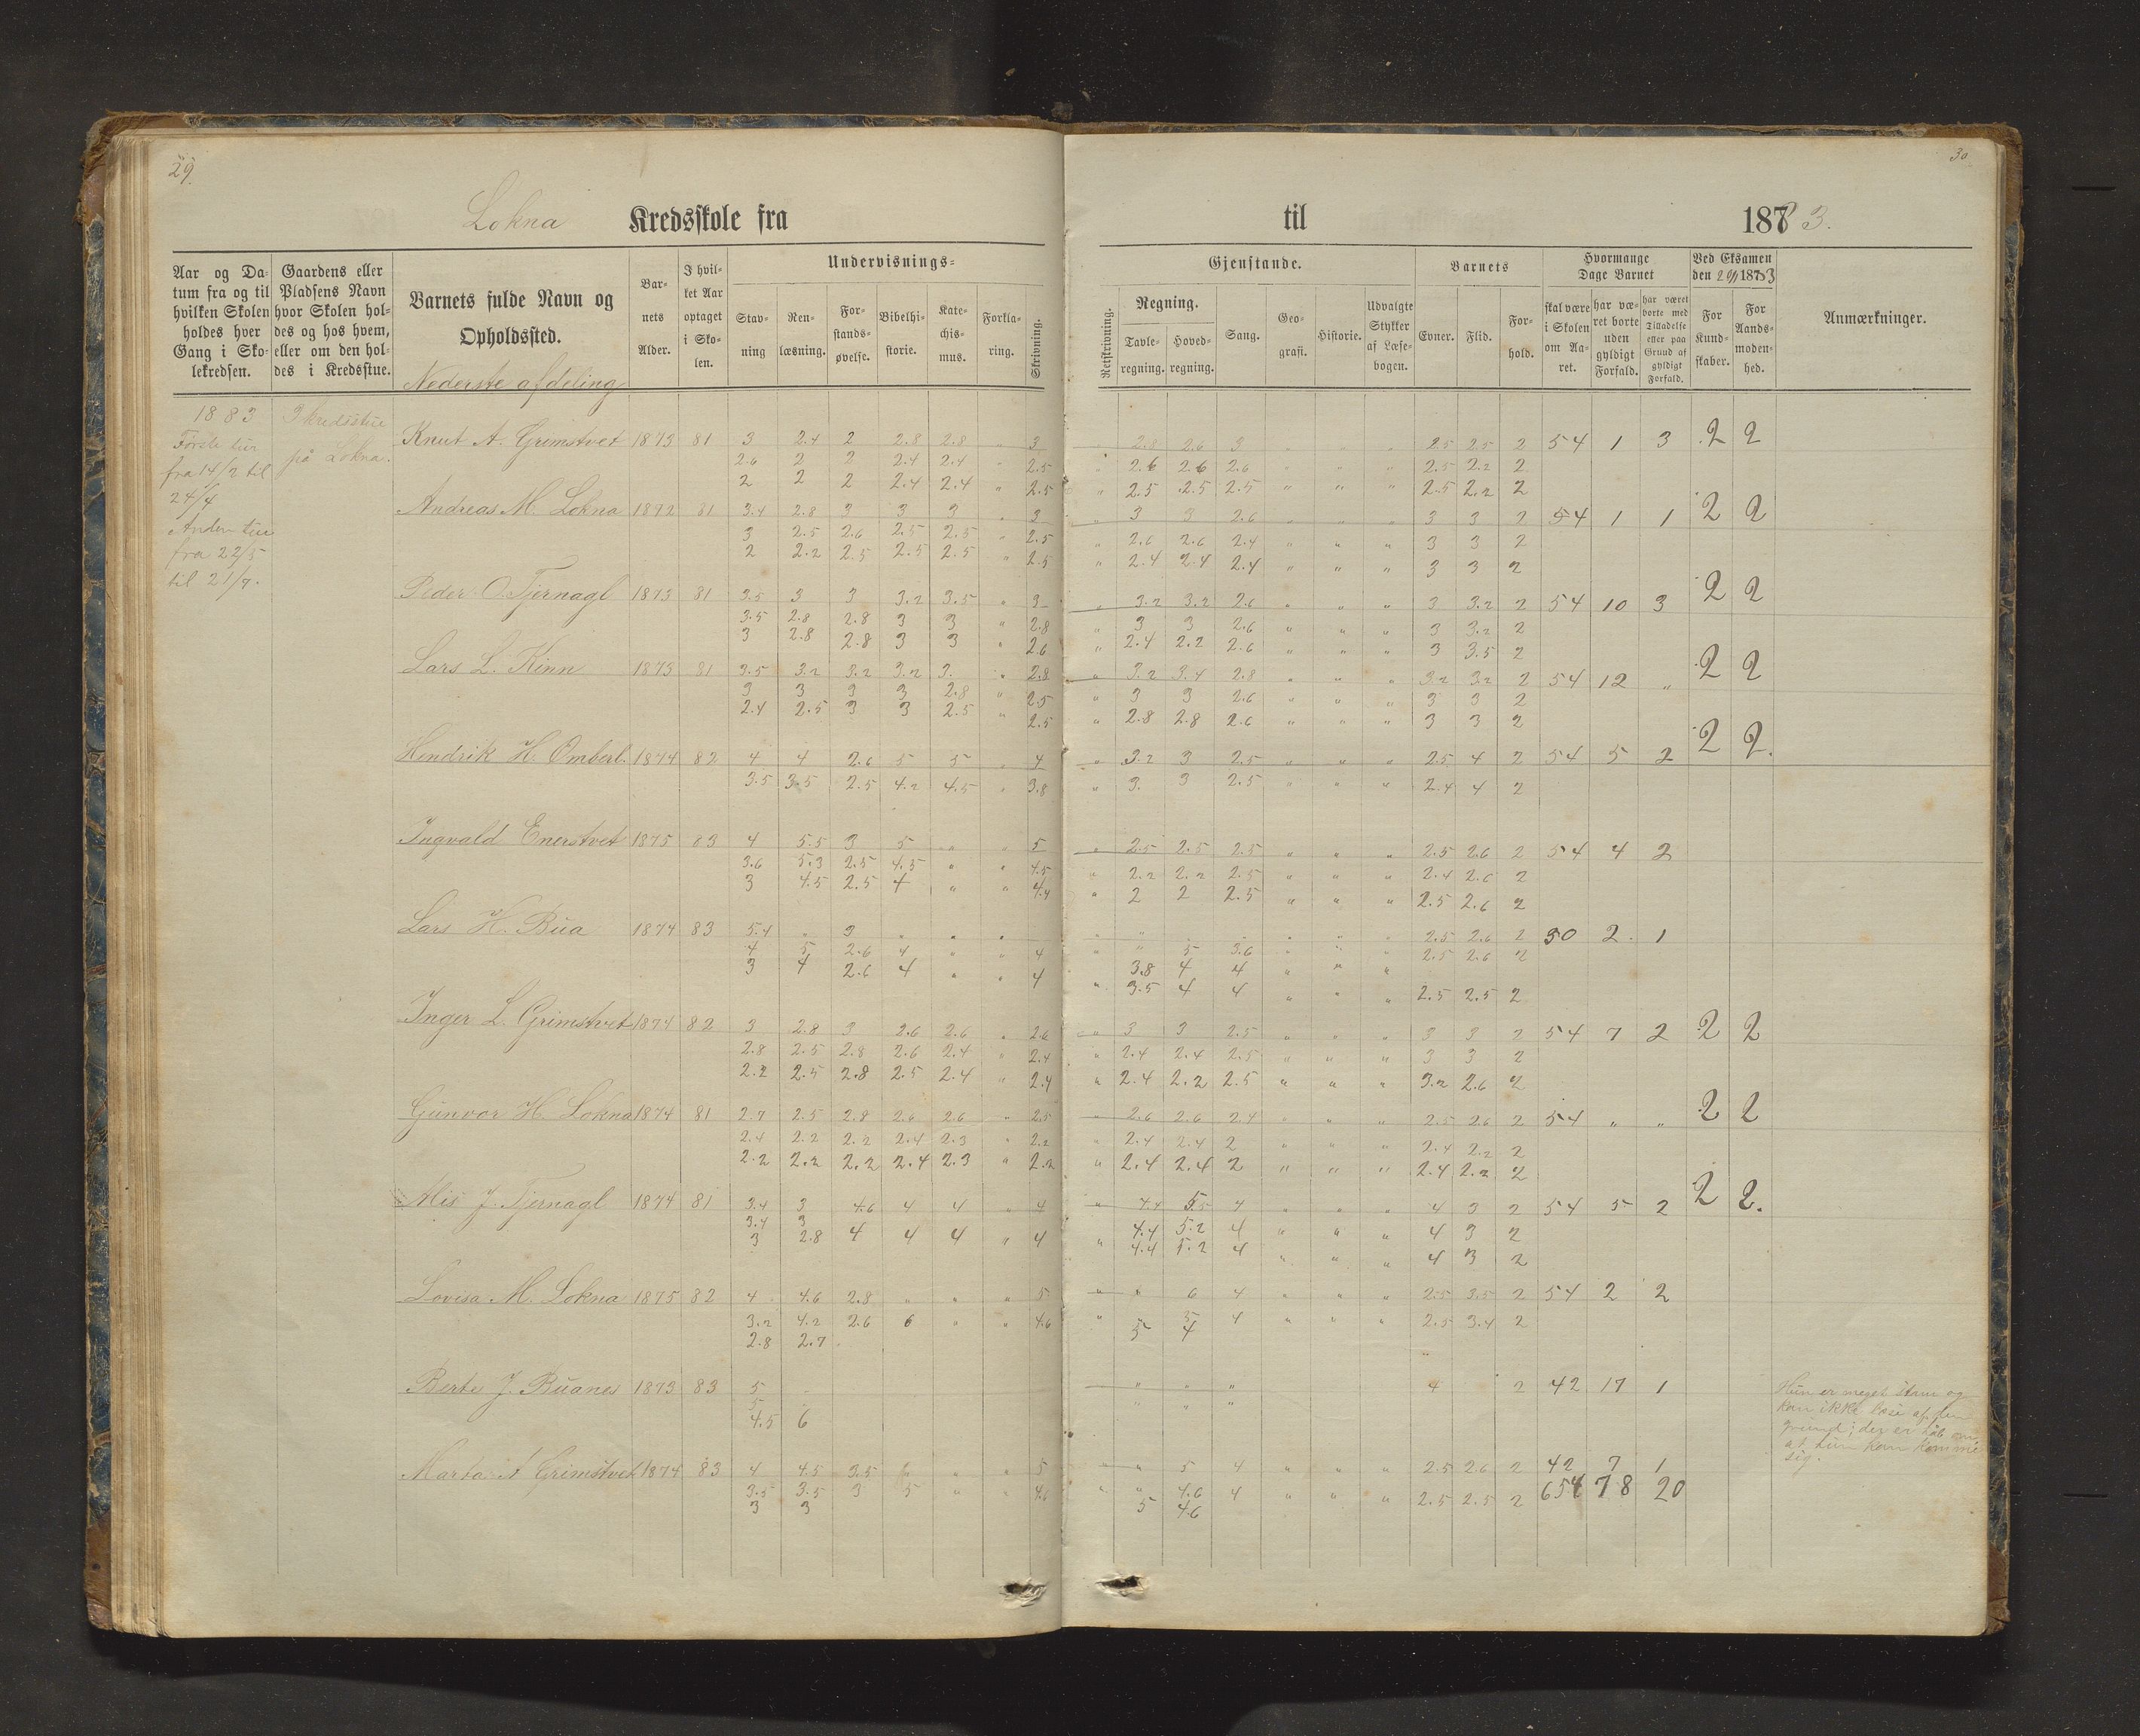 29.
30
Lokna Kredsskole fra til 1883.
Aar og Datum fra og til hvilken Skolen holdes hver Gang i Skolekredsen.
Gaardens eller Pladsens Navn hvor Skolen holdes og hos hvem, eller om den holdes i Kredsstue.
Barnets fulde Navn og Opholdssted.
Barnets Alder.
I hvilket Aar optaget i Skolen.
Undervisnings-
Stavning
Renlæsning.
Forstandsøvelse.
Bibelhistorie.
Katechismus.
Forklaring.
Skrivning.
Gjenstande.
Retskrivning.
Regning.
Tavleregning.
Hovedregning.
Sang.
Geografi.
Historie.
Udvalgte Stykker af Læsebogen.
Barnets
Evner.
Flid.
Forhold.
Hvormange Dage Barnet
skal være i Skolen om Aaret.
har været borte uden gyldigt Forfald.
har været borte med Tilladelse eller paa Grund af gyldigt Forfald.
Ved Eksamen den 1883
For Kundskaber.
For Aandsmodenhed.
Anmærkninger.
Nederste afdeling
1883
Første tur
fra 14/2 til
24/4
Anden tur
fra 22/5
til 21/7.
I kredsstue
på Lokna.
Knut A. Grimstvet 1873 81 3 2.4 2 2.8 2.8 " 3 " 2.8 2.6 3 " " " 2.5 2.5 2 54 1 3 2 2
2.6 2 2 2.4 2.4 " 2.5 " 2.6 2.6 2.6 " " " 2.5 2.2 2
2 2 2 2.4 2.4 " 2.5 " 2.5 2.5 2.5 " " " 2.5 2.2 2
Andreas M. Lokna 1872 81 3.4 2.8 3 3 3 " 3 " 3 3 2.6 " " " 3 3 2 54 1 1 2 2
3 2.5 2.6 2.5 2.5 " 2.5 " 2.6 2.6 2.4 " " " 3 3 2
2 2.2 2.5 2.5 2.5 " 2.5 " 2.4 2.4 2.4 " " " 3 3 2
Peder O. Tjernagl 1873 81 3.5 3 3 3.2 3.5 " 3 " 3.2 3.2 2.6 " " " 3 3.2 2 54 10 3 2 2
3.5 2.8 2.8 3 3 " 2.8 " 3 3 2.6 " " " 3 3.2 2
3 2.8 2.8 3 3 " 2.6 " 2.4 2.2 2.6 " " " 3 3.5 2
Lars L. Kinn 1873 81 3.5 3.2 3.2 3.2 3. " 2.8 " 3.2 3.4 2.8 " " " 3.2 3.2 2 54 12 " 2 2
3 3 3 3 2.8 " 2.5 " 3 3 2.6 " " " 3 3 2
2.4 2.5 3 3 2.5 " 2.5 " 2.8 2.8 2.6 " " " 3 3 2
Hendrik H. Omberl. 1874 82 4 4 2.6 5 5 " 4 " 3.2 3 2.5 " " " 2.5 4 2 54 5 2 2 2.
3.5 3.5 2.5 4.2 4.5 " 3.8 " 3. 3 2.5 " " " 2.4 4 2
Ingvald Enerstvet 1875 83 4 5.5 3 5 " " 5 " 2.5 2.5 2.5 " " " 2.5 2.6 2 54 4 2
3.6 5.3 2.5 4.5 " " 4.5 " 2.2 2.2 2.5 " " " 2.4 2.6 2
3 4.5 2.5 4 " " 4.4 " 2 2 2.5 " " " 2.5 2.6 2
Lars H. Bua 1874 83 5.4 " 3 " " " " " " " " " " 2.5 2.6 2 30 2 1
4 5 2.6 4 " " 4 " " 5 3.6 " " " 2.5 2.6 2
3 4 2.6 4 " " 4 3.8 4 4 " " "
" 3.5 4 4 " " " 2.5 2.5 2
Inger L. Grimstvet 1874 82 3 2.8 3 2.6 2.6 " 2.6 " 3 3 2.5 " " " 3 3 2 54 7 2 2 2
2.8 2.5 2.8 2.6 2.4 " 2.4 " 2.4 2.4 2.5 " " " 3 3 2
2.2 2.5 2.8 2.5 2.4 " 2.4 " 2.4 2.2 2.5 " " " 3.2 2.6 2
Gunvor H. Lokna 1874 81 2.7 2.5 2.8 2.6 2.6 " 2.5 " 2.6 2.6 2.4 " " " 2.5 2.6 2 54 " " 2 2
2.4 2.2 2.2 2.4 2.3 " 2.2 " 2.4 2.4 2 " " " 2.4 2.2 2
2.2 2.2 2.2 2.4 2.3 " 2.2 " 2.4 2.4 2 " " " 2.4 2.2 2
Alis J. Tjernagl 1874 81 3.4 3 4.6 4 4 " 4 " 4.4 5.5 4 " " " 4 3 2 54 5 2 2 2.
3.4 3 4.4 5.2 4 " " " 4 3 2
3 2.8 4 4 4 " 4 " 4.4 5.2 4 " " " 4 3 2
Lovisa M. Lokna 1875 82 4 4.6 2.8 " " " 5 " " 6 4 " " " 2.5 3.5 2 54 2 2
3.2 4.2 2.6 6 " " 4.6 " " 5 4 " " " 2.5 3.4 2
2.8 2.7 5 4
Berte J. Buanes 1873 83 5 " " " 4 2 42 17 1
5 " " "
4.5 6
Hun er meget stam og
kan ikke læse af den
grund; der er håb om
at hun kan komme
sig.
Marta A Grimstvet 1874 83 4 4.5 3.5 " " 5 " " 5 4 " " " 2.5 2.6 2 42 7 1
3.5 3.5 3 5 " " 4.6 " " 4.6 4 " " " 2.5 2.5 2 654 78 20
3 3 5 4.6